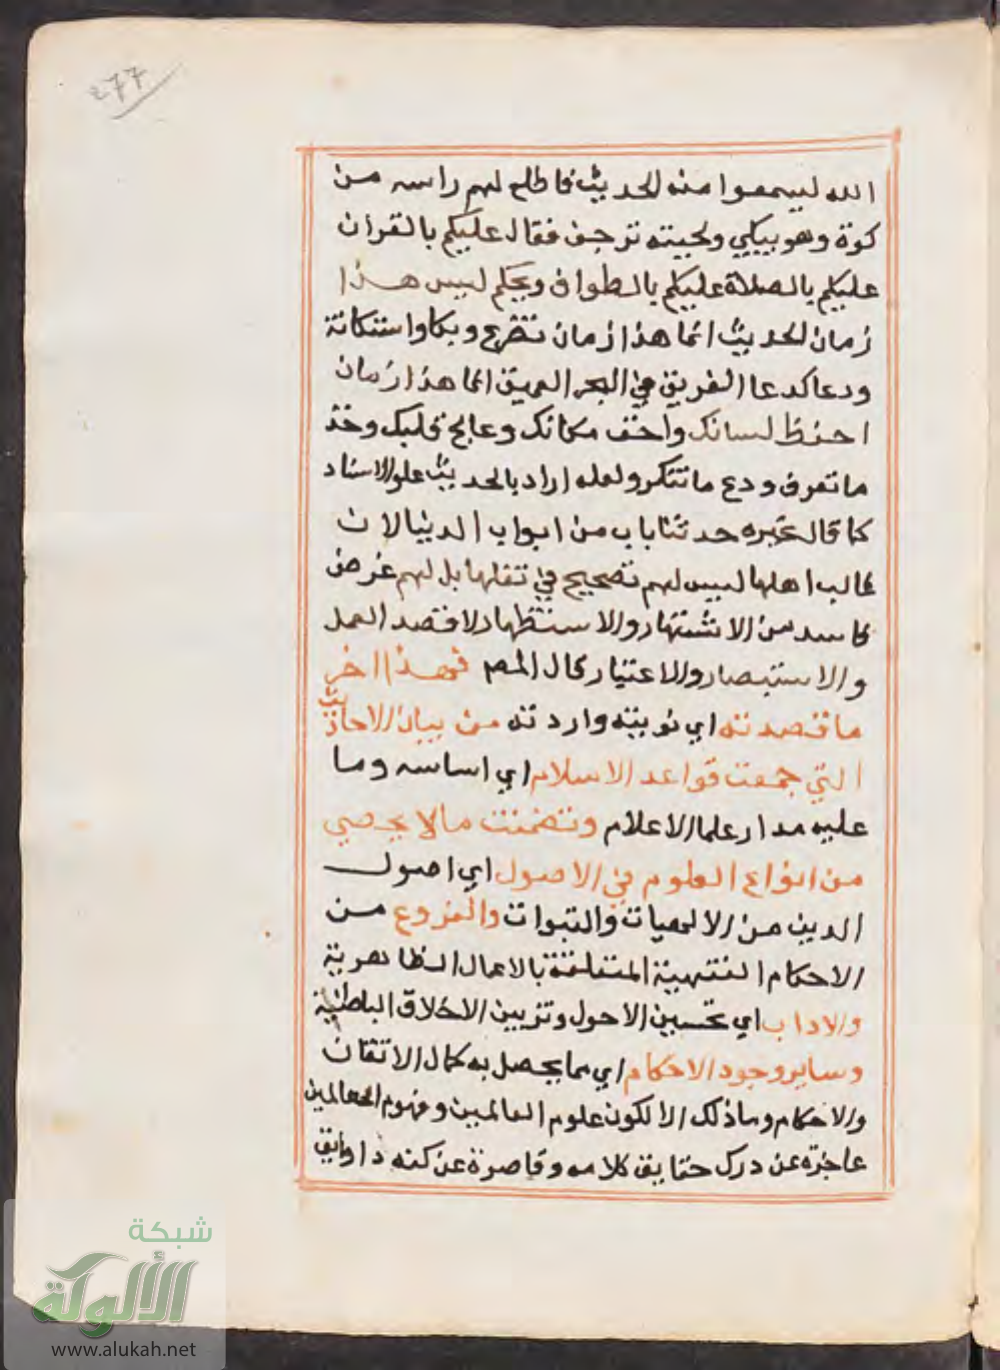 ٢٧٧
الله ليسمعوا منه الحديث فاطلع لهم راسه من
كوة وهو يبكي ولحيته ترجف فقال عليكم بالقران
عليكم بالصلاة عليكم بالطواف ويحكم ليس هذا
زمان الحديث انما هذا زمان تضرع وبكا واستكانة
ودعا كدعا الغريق في البحر العميق انما هذا زمان
احفظ لسانك واخف مكانك وعالج قلبك وخذ
ما تعرف ودع ما تنكر ولعله اراد بالحديث علو الاسناد
كما قال غيره حدثنا باب من ابواب الدنيا لان
غالب اهلها ليس لهم تصحيح في نقلها بل لهم غرض
فاسد من الاشتهار والاستظهار لا قصد العمل
والاستبصار والاعتبار قال المص فهذا اخر
ما قصدته اي نويته واردته من بيان الاحاديث
التي جمعت قواعد الاسلام اي اساسه وما
عليه مدار علما الاعلام وتضمنت ما لا يحصي
من انواع العلوم في الاصول اي اصول
الدين من الالهيات والنبوات والفروع من
الاحكام الفقهية المتعلقة بالاعمال الظاهرية
والاداب اي تحسين الاحول وتزيين الاخلاق الباطنية
وساير وجود الاحكام اي مما يحصل به كمال الاتقان
والاحكام وما ذلك الا لكون علوم العالمين وفهوم العالمين
عاجزة عن درك حقايق كلامه وقاصرة عن كنه
شبكة
الألوكة
www.alukah.net